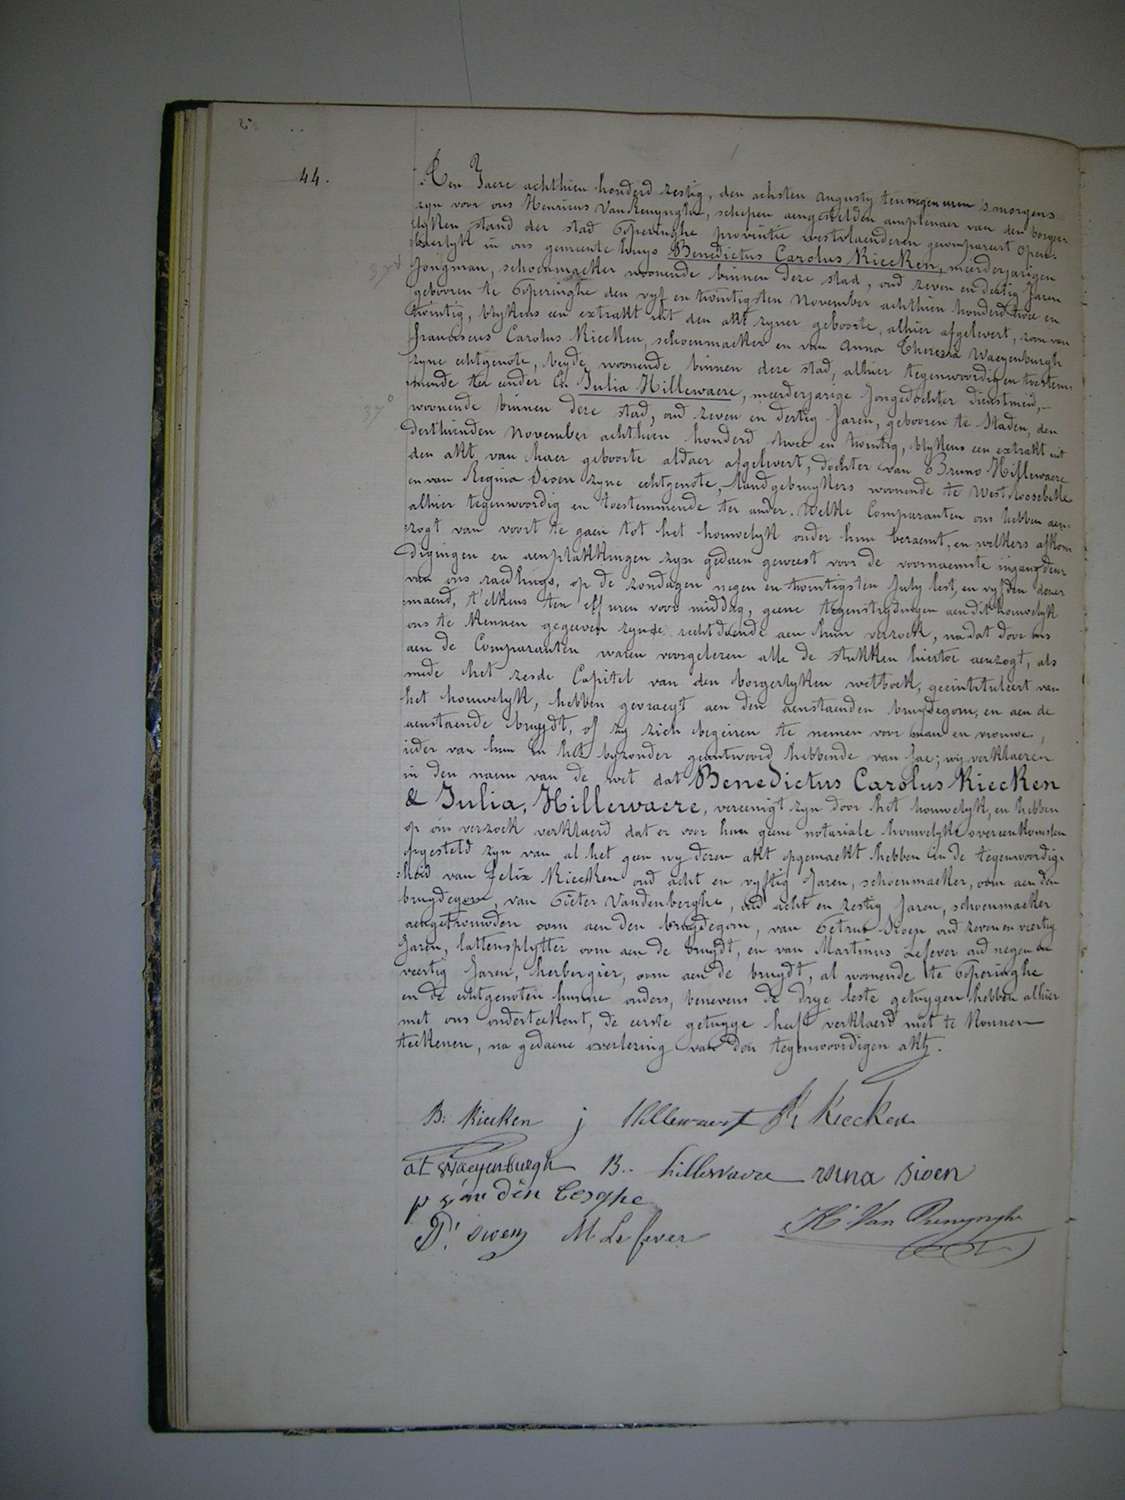 44.
Den Jaere achthien honderd zestig, den achsten augusty ten negen uren 's morgens
zyn voor ons Henricus Van Renynghe, schepen aengestelden amptenaer van den borger-
lyken stand der stad Poperinghe provintie westvlaenderen gecompareert open-
baerlyk in ons gemeente huys Benedictus Carolus Kiecken, meerderjarigen
Jongman, schoenmaeker woonende binnen deze stad, oud zeven en dertig Jaren
gebooren te Poperinghe den vyf en twintigsten November achthien honderd twee en
twintig, blykens een extrakt uit den akt zyner geboorte, alhier afgelevert, zoon van
franciscus Carolus Kiecken, schoenmaeker en van Anna Theresia Waeyenburgh
zyne echtgenote, beyde woonende binnen deze stad, alhier tegenwoordig en toestem-
mende ter eender En Julia Hillewaere, meerderjarige Jongedochter dienstmeid,
woonende binnen deze stad, oud zeven en dertig Jaren, gebooren te Staden, den
derthienden November achthien honderd twee en twintig, blykens een extrakt uit
den akt van haer geboorte aldaer afgelevert, dochter van Bruno Hillewaere
en van Regina Sioen zyne echtgenote, landgebruykers woonende te Westroosebeke
alhier tegenwoordig en toestemmende ter ander. Welke Comparanten ons hebben aen-
zogt van voort te gaen tot het houwelyk onder hun beraemt, en welkers afkon-
digingen en aenplakkingen zyn gedaen geweest voor de voornaemste ingangdeur
van ons raedhuys, op de zondagen negen en twintigsten July lest, en vyfden dezer
maend, t'elkens ten elf uren voor middag, geene tegenstrydingen aen dit houwelyk
ons te kennen gegeven zynde rechtdoende aen hun verzoek, na dat door ons
aen de Comparanten waren voorgelezen alle de stukken hiertoe aenzogt, als
mede het zesde Capitel van den borgerlyken wetboek, geeintituleert van
het houwelyk, hebben gevraegt aen den aenstaenden bruydegom, en aen de
aenstaende bruydt, of zy zich begeiren te nemen voor man en vrouwe,
ieder van hun in het byzonder geantwoord hebbende van Jae; wy verklaeren
in den naem van de wet dat Benedictus Carolus Kiecken
& Julia, Hillewaere, vereenigt zyn door het houwelyk, en hebben
op ons verzoek verklaerd dat er voor hun geene notariale houwelyksovereenkomsten
opgesteld zyn van al het geen wy dezen akt opgemaekt hebben in de tegenwoordig-
heid van Felix Kiecken oud acht en vyftig Jaren, schoenmaeker, oom aen den
bruydegom, van Pieter Vandenberghe, oud acht en zestig Jaren, schoenmaeker
aengetrouwden oom aen den bruydegom, van Petrus Sioen oud zeven en veertig
Jaren, lattensplytter oom aen de bruydt, en van Martinus Lefever oud negen en
veertig Jaren, herbergier, oom aen de bruydt, al woonende te Poperinghe
en de echtgenoten hunne ouders, benevens de drye leste getuygen hebben alhier
met ons onderteekent, de eerste getuyge heeft verklaerd niet te konnen
teekenen, na gedaene overlezing van den tegenwoordigen akt.
B: Kiecken j Hillewaere Kiecken
at Waeyenburgh B.. hillewaere sioen
p van den
P. sioen M. Le fever H. Van Renynghe